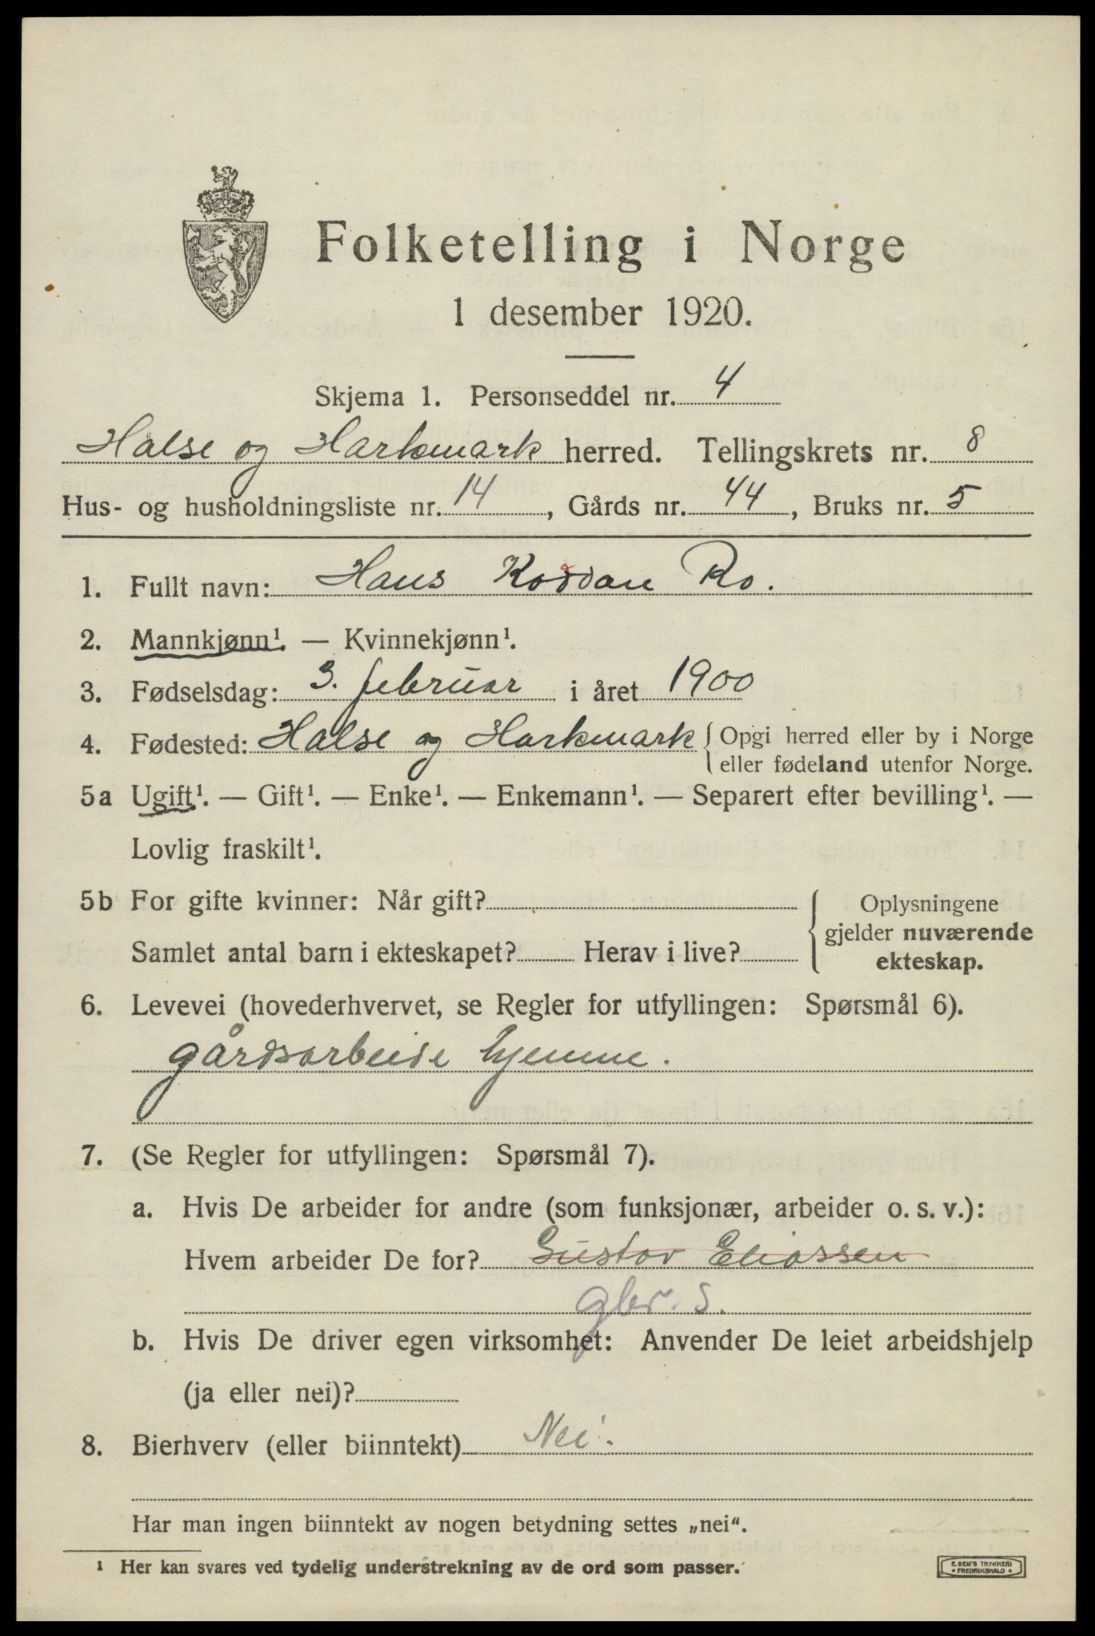 Folketelling i Norge
1 desember 1920.
Skjema 1. Personseddel nr. 4
Halse og Harkmark herred. Tellingskrets nr. 8
Hus- og husholdningsliste nr. 14, Gårds nr. 44, Bruks nr. 5
1. Fullt navn: Hans Koddan Ro.
2. Mannkjønn¹. — Kvinnekjønn¹.
3. Fødselsdag: 3. februar i året 1900
4. Fødested: Halse og Harkmark { Opgi herred eller by i Norge
eller fødeland utenfor Norge.
5a Ugift¹. — Gift¹. — Enke¹. — Enkemann¹. — Separert efter bevilling¹. —
Lovlig fraskilt¹.
5b For gifte kvinner: Når gift?
Samlet antal barn i ekteskapet? Herav i live?
Oplysningene
gjelder nuværende
ekteskap.
6. Levevei (hovederhvervet, se Regler for utfyllingen: Spørsmål 6).
gårdsarbeide hjemme.
7. (Se Regler for utfyllingen: Spørsmål 7).
a. Hvis De arbeider for andre (som funksjonær, arbeider o. s. v.):
Hvem arbeider De for? Gustav Eliassen
gbr. S.
b. Hvis De driver egen virksomhet: Anvender De leiet arbeidshjelp
(ja eller nei)?
8. Bierhverv (eller biinntekt) Nei.
Har man ingen biinntekt av nogen betydning settes „nei“.
¹ Her kan svares ved tydelig understrekning av de ord som passer.
E. SEM'S TRYKKERI
FREDRIKSHALD